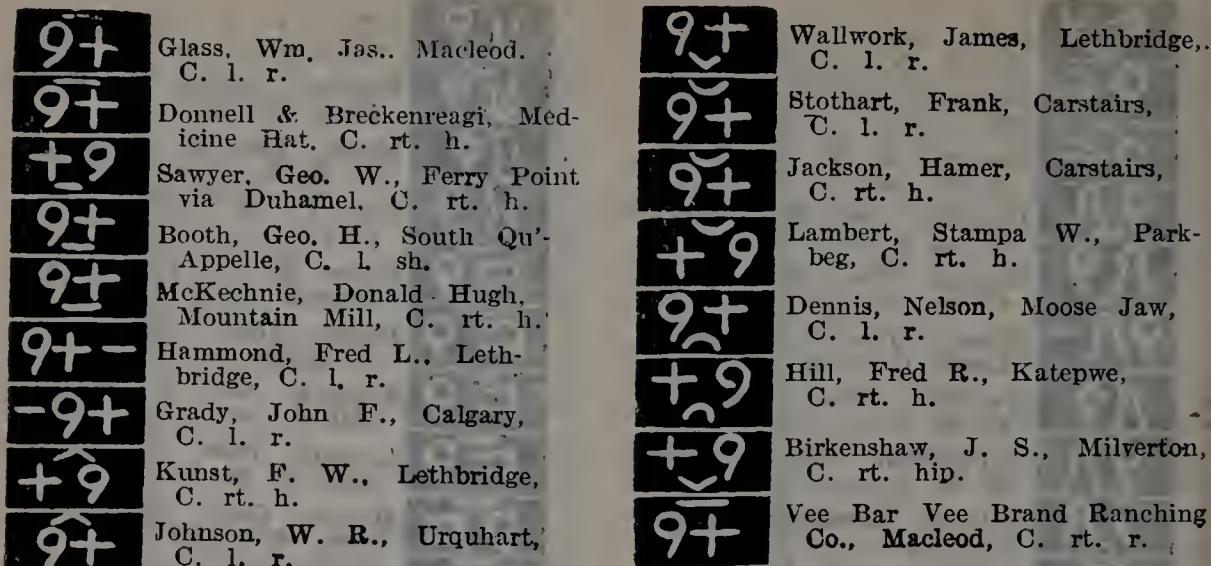 9+ Glass, Wm. Jas.. Macleod.
C. l. r.
9+ Donnell & Breckenreagi, Med-
icine Hat. C. rt. h.
+9 Sawyer, Geo. W., Ferry Point
via Duhamel, C. rt. h.
9+ Booth, Geo. H., South Qu'-
Appelle, C. l. sh.
9+ McKechnie, Donald Hugh,
Mountain Mill, C. rt. h.
9+- Hammond, Fred L., Leth-
bridge, C. l. r.
-9+ Grady, John F., Calgary,
C. l. r.
+9 Kunst, F. W., Lethbridge,
C. rt. h.
9+ Johnson, W. R., Urquhart,
C. l. r.
9+ Wallwork, James, Lethbridge,.
C. l. r.
9+ Stothart, Frank, Carstairs,
C. l. r.
9+ Jackson, Hamer, Carstairs,
C. rt. h.
+9 Lambert, Stampa W., Park-
beg, C. rt. h.
9+ Dennis, Nelson, Moose Jaw,
C. l. r.
+9 Hill, Fred R., Katepwe,
C. rt. h.
+9 Birkenshaw, J. S., Milverton,
C. rt. hip.
9+ Vee Bar Vee Brand Ranching
Co., Macleod, C. rt. r.